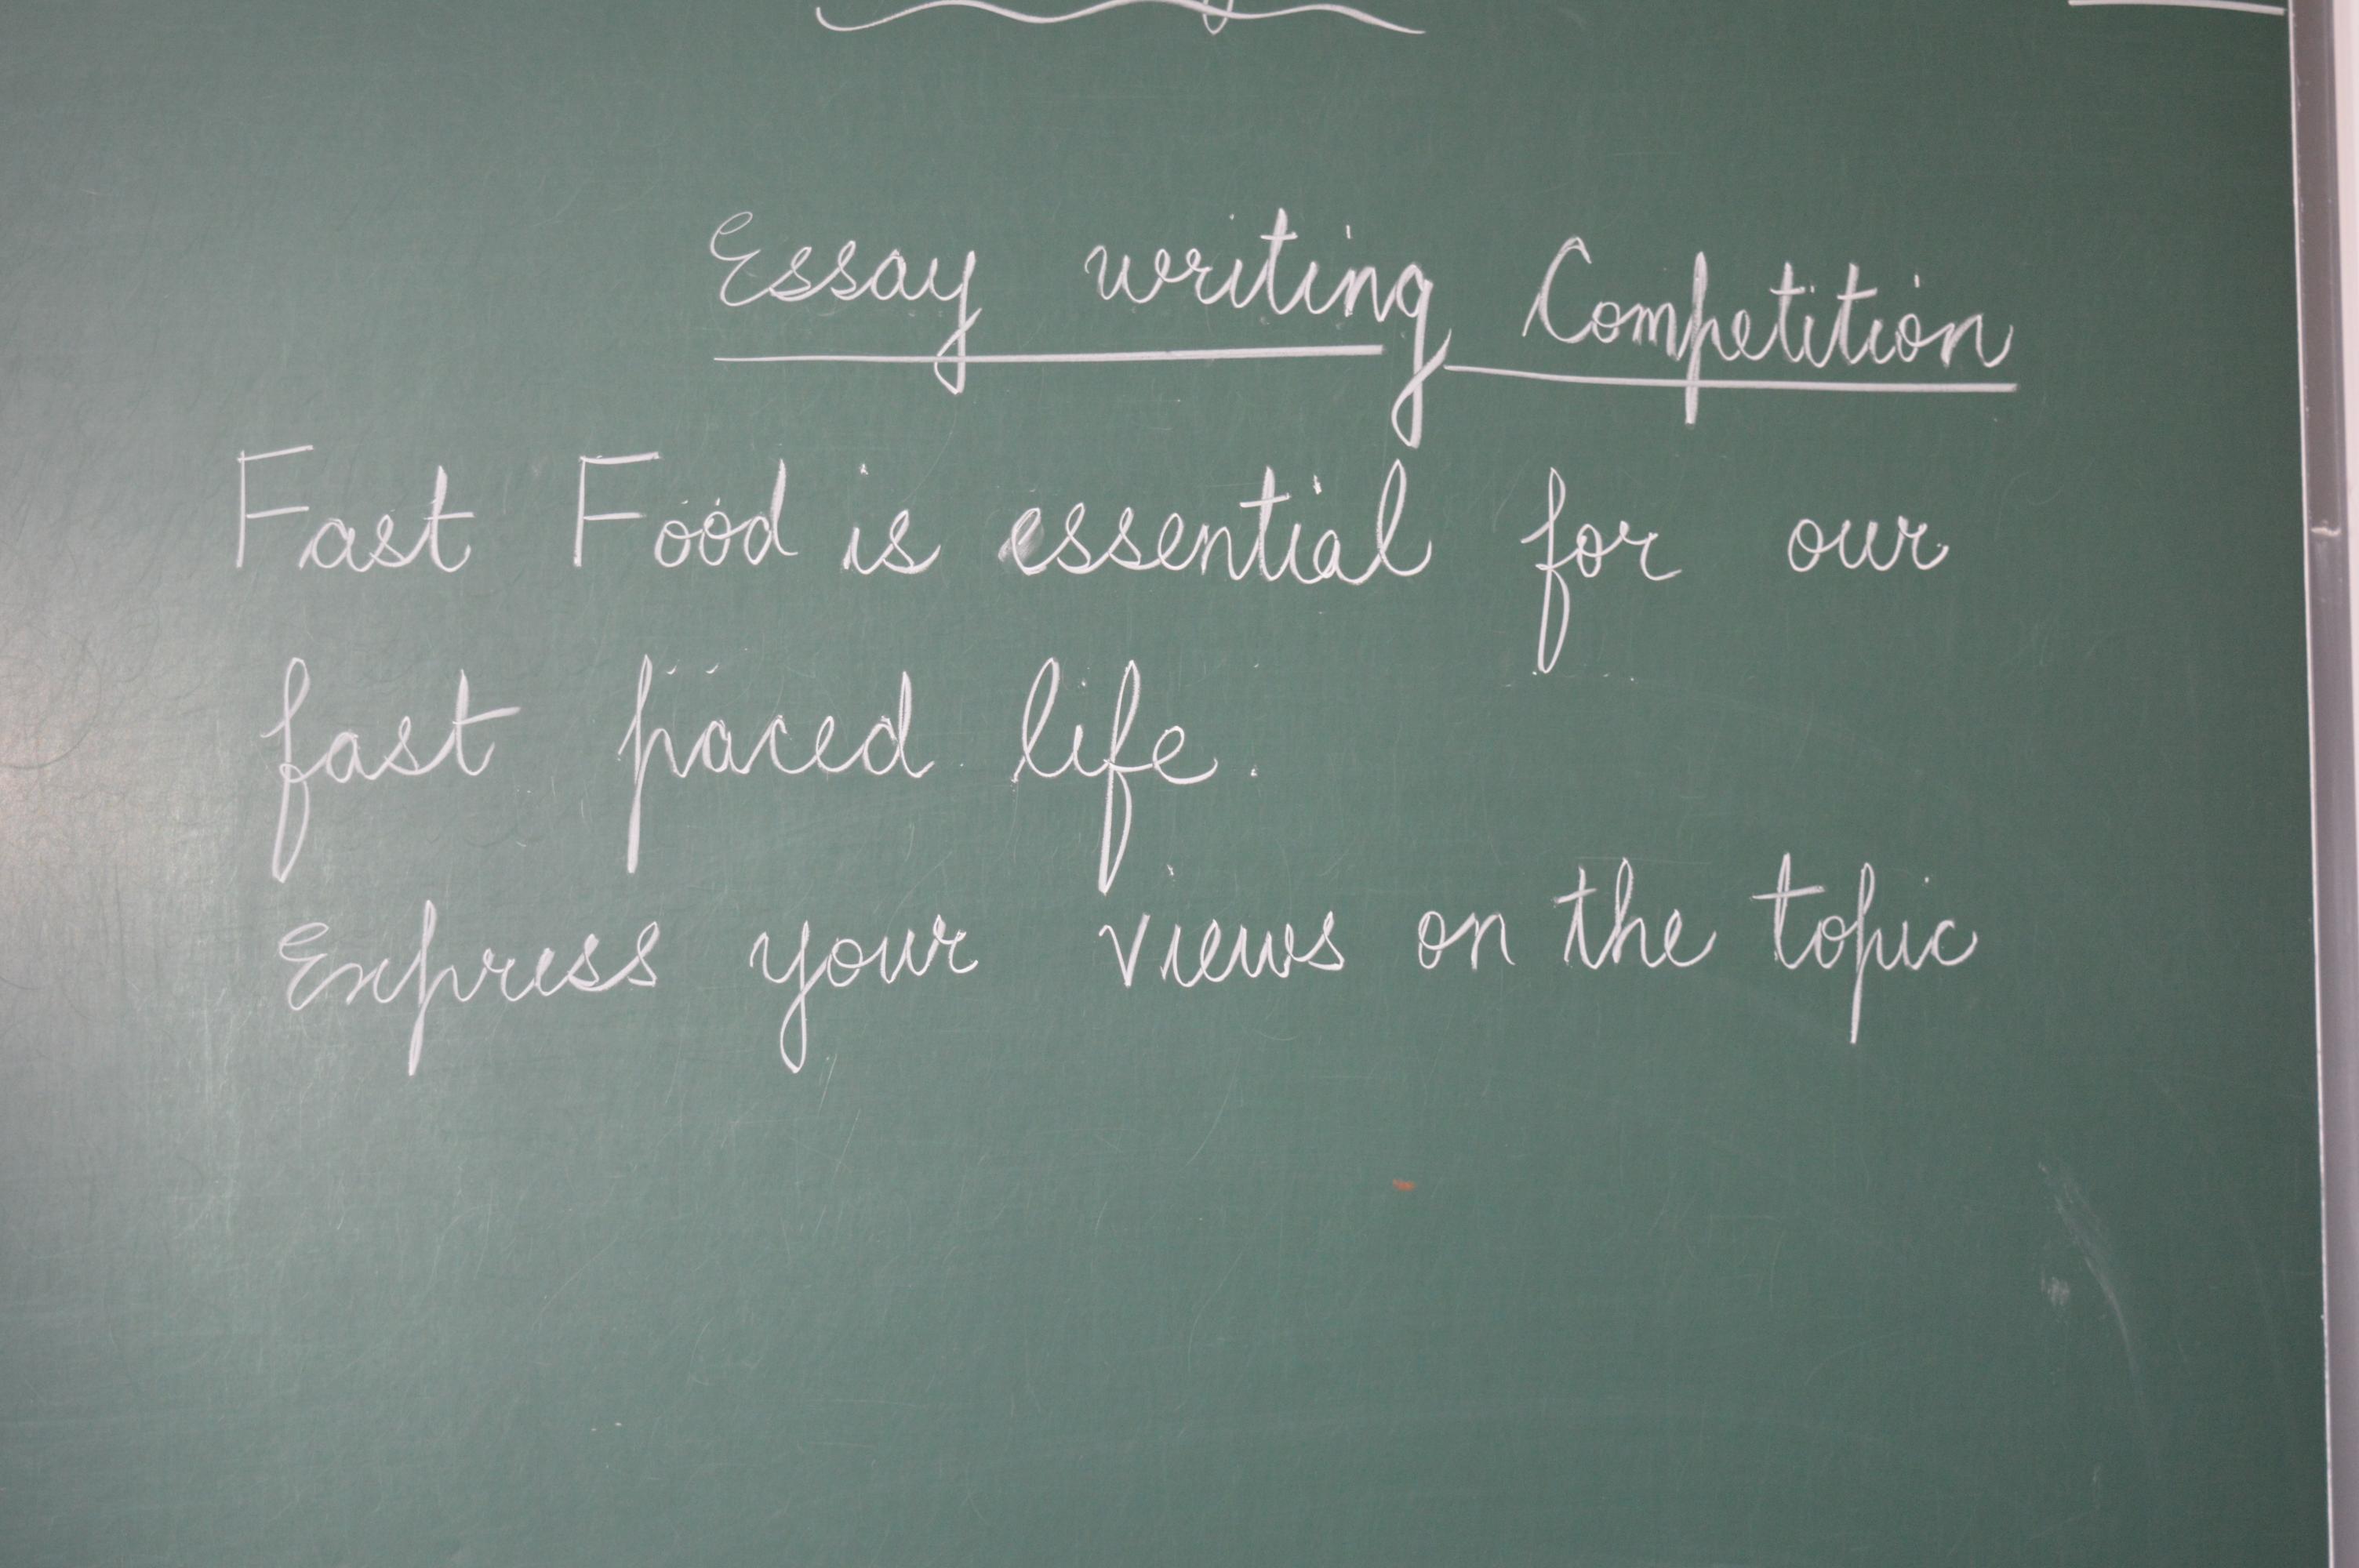 Essay writing Competition
Fast Food is essential for our
fast paced life.
Express your views on the topic